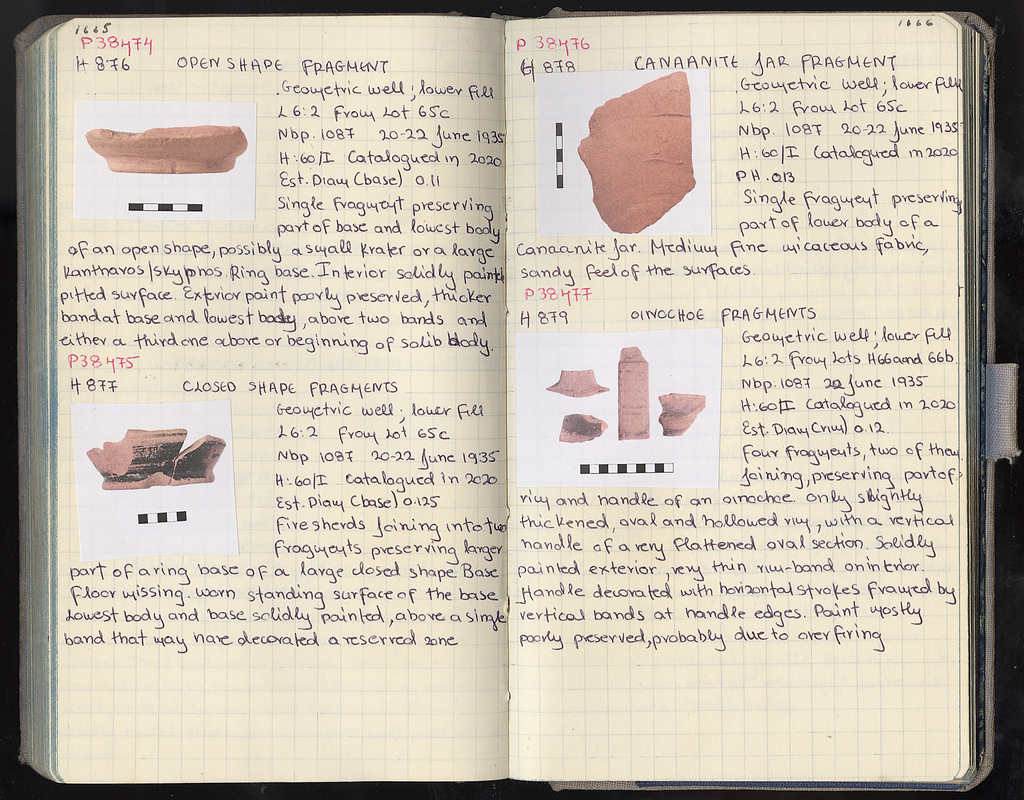 1665
P38474
H 876 OPEN SHAPE FRAGMENT
Geometric well; lower fill
L6:2 from Lot 65c
Nbp. 1087 20-22 June 1935
H:60/I Catalogued in 2020
Est. Diam (base) 0.11
Single fragment preserving
part of base and lowest body
of an open shape, possibly a small krater or a large
kantharos/skyphos. Ring base. Interior solidly painted
pitted surface. Exterior paint poorly preserved, thicker
band at base and lowest body, above two bands and
either a third one above or beginning of solib body.
P38475
H 877 CLOSED SHAPE FRAGMENTS
Geometric well; lower fill
L6:2 from Lot 65c
Nbp 1087 20-22 June 1935
H:60/I Catalogued in 2020
Est. Diam (base) 0.125
Five sherds joining into two
fragments preserving larger
part of a ring base of a large closed shape. Base
floor missing. Worn standing surface of the base
Lowest body and base solidly painted, above a single
band that may have decorated a reserved zone
1666
P 38476
H 878 CANAANITE JAR FRAGMENT
Geometric well; lower fill
L6:2 from Lot 65c
Nbp. 1087 20-22 June 1935
H:60/I Catalogued in 2020
PH. 0.13
Single fragment preserving
part of lower body of a
Canaanite jar. Medium fine micaceous fabric,
sandy feel of the surfaces.
P38477
H 879 OINOCHOE FRAGMENTS
Geometric well; lower fill
L6:2 from Lots H66 and 66b.
Nbp. 1087 22 June 1935
H:60/I Catalogued in 2020
Est. Diam (rim) 0.12
Four fragments, two of them
joining, preserving part of
rim and handle of an oinochoe. Only slightly
thickened, oval and hollowed rim, with a vertical
handle of a very flattened oval section. Solidly
painted exterior, very thin rim-band on interior.
Handle decorated with horizontal strokes framed by
vertical bands at handle edges. Paint mostly
poorly preserved, probably due to over firing